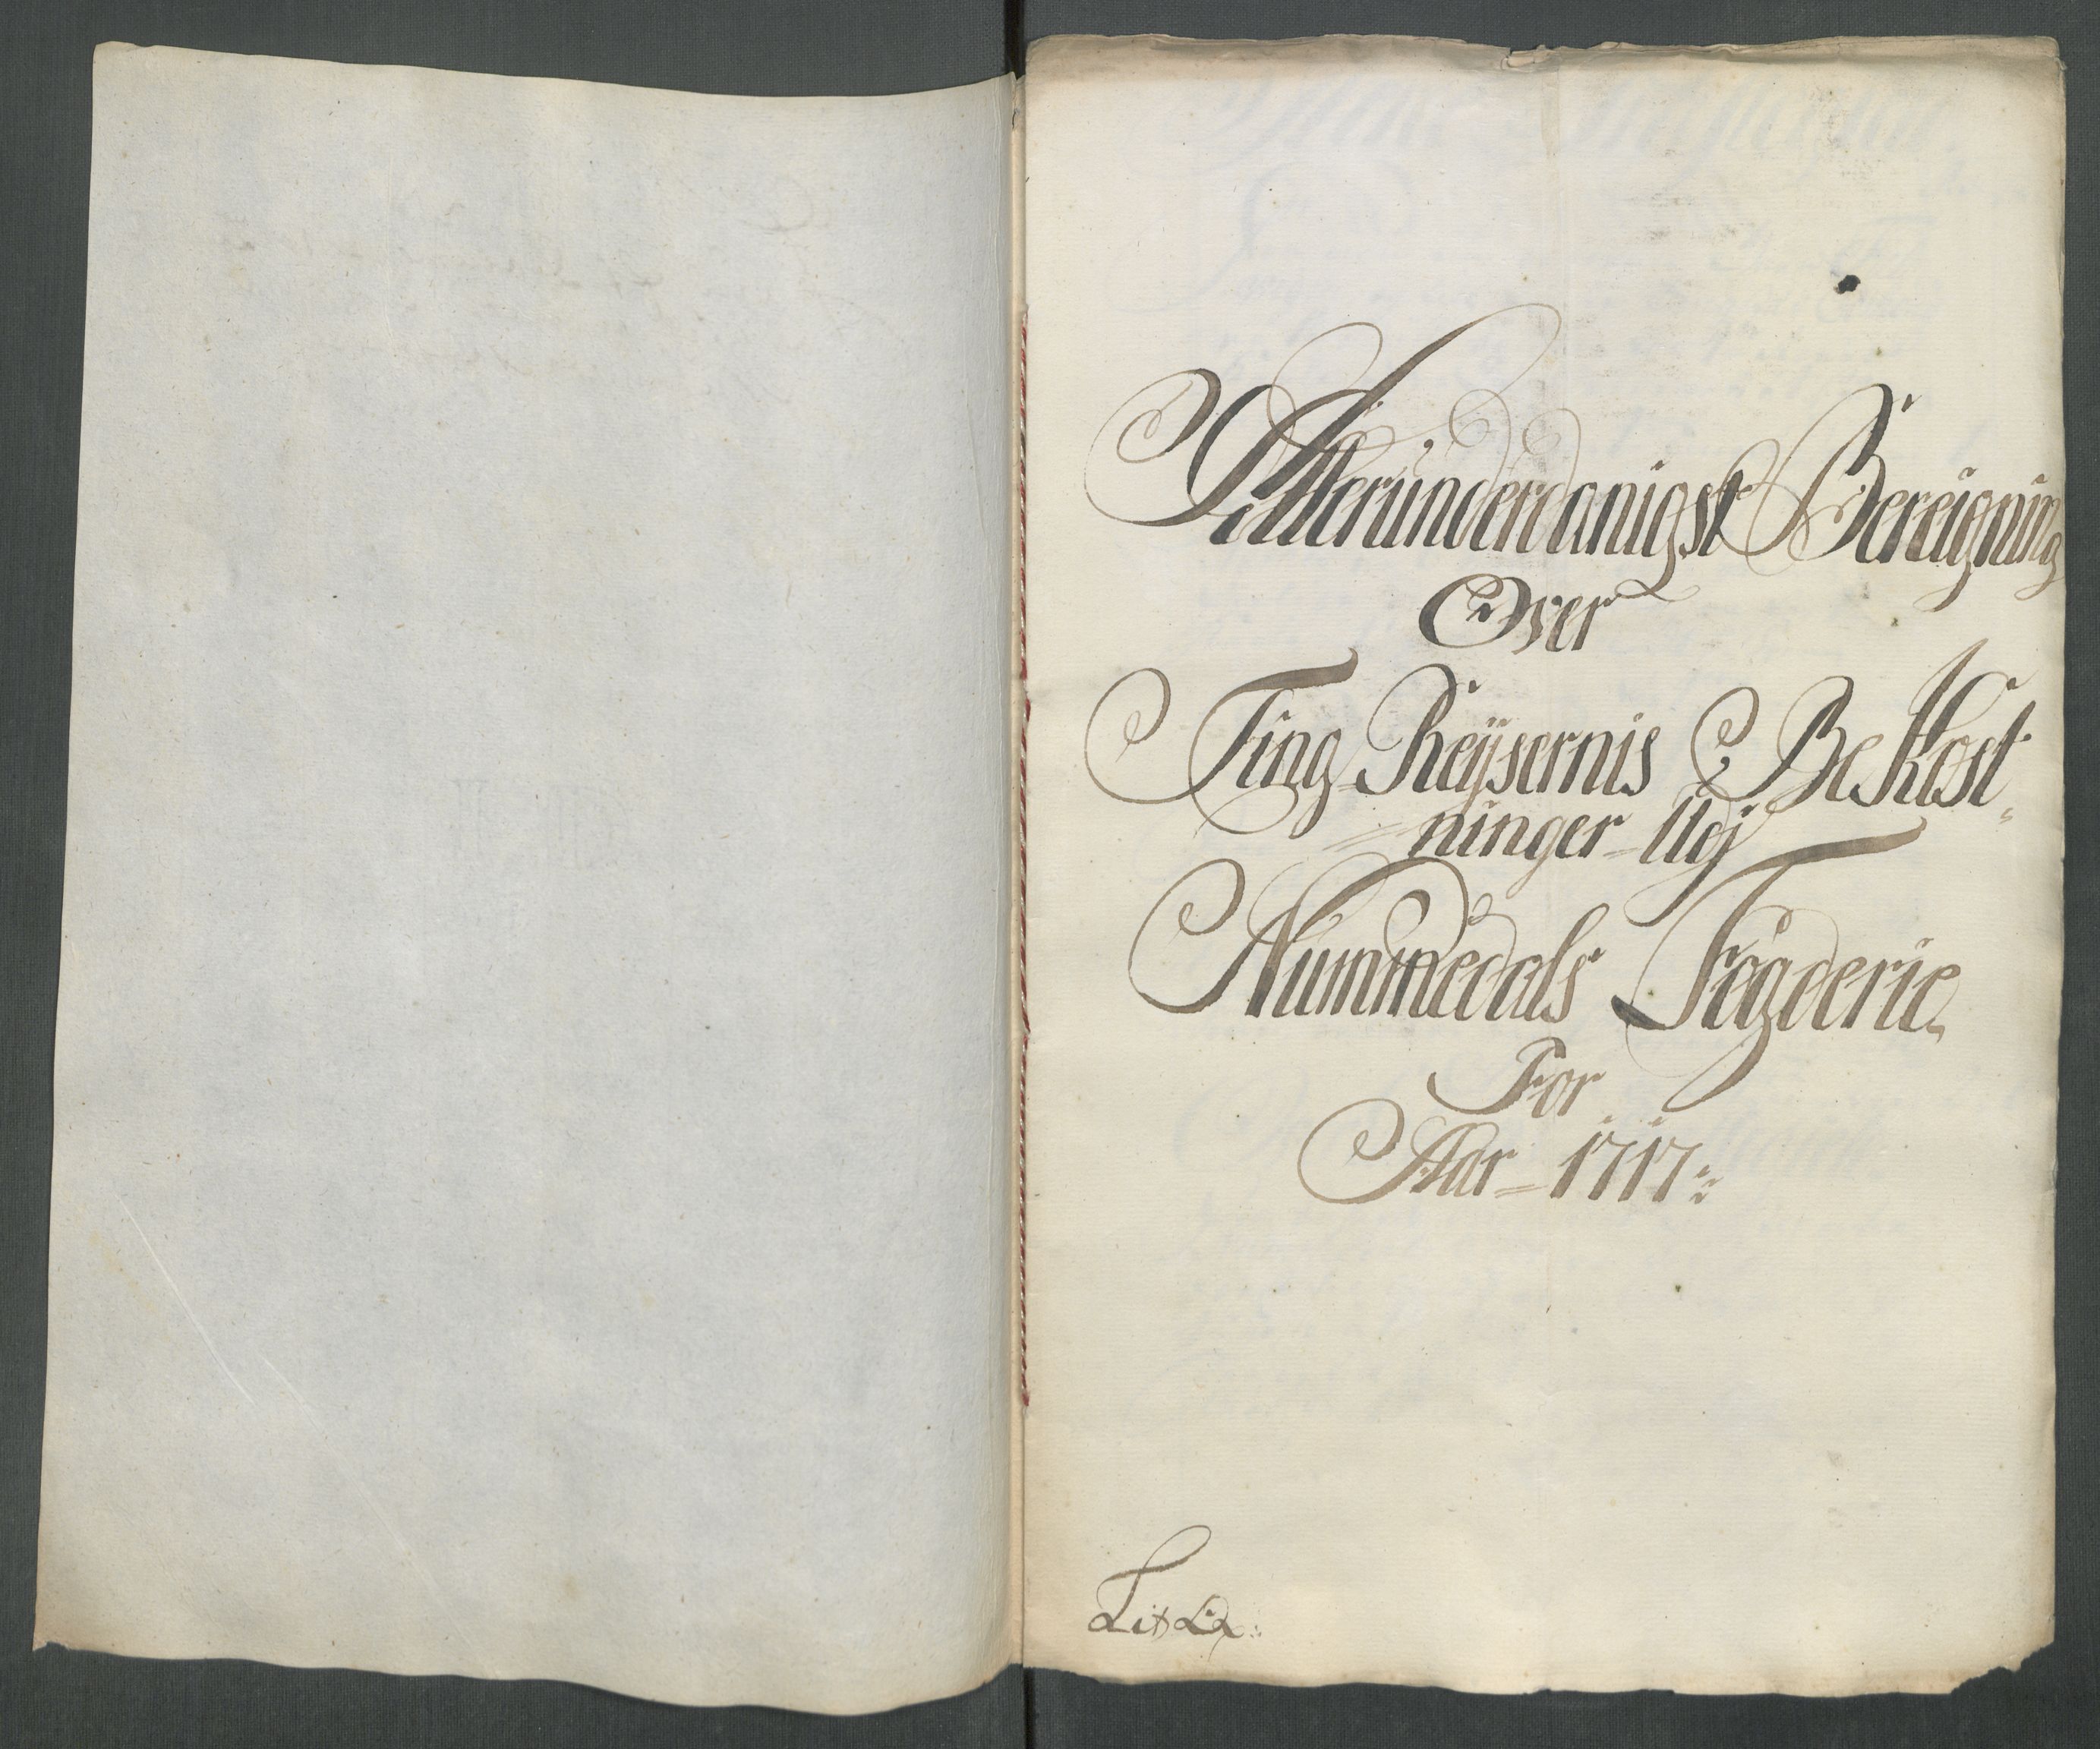 Alleründerdanigst Bereigning
Over
Ting Reÿsernis Bekost-
ninger Udj
Nummedals Fogderie
For
Aar 1717: